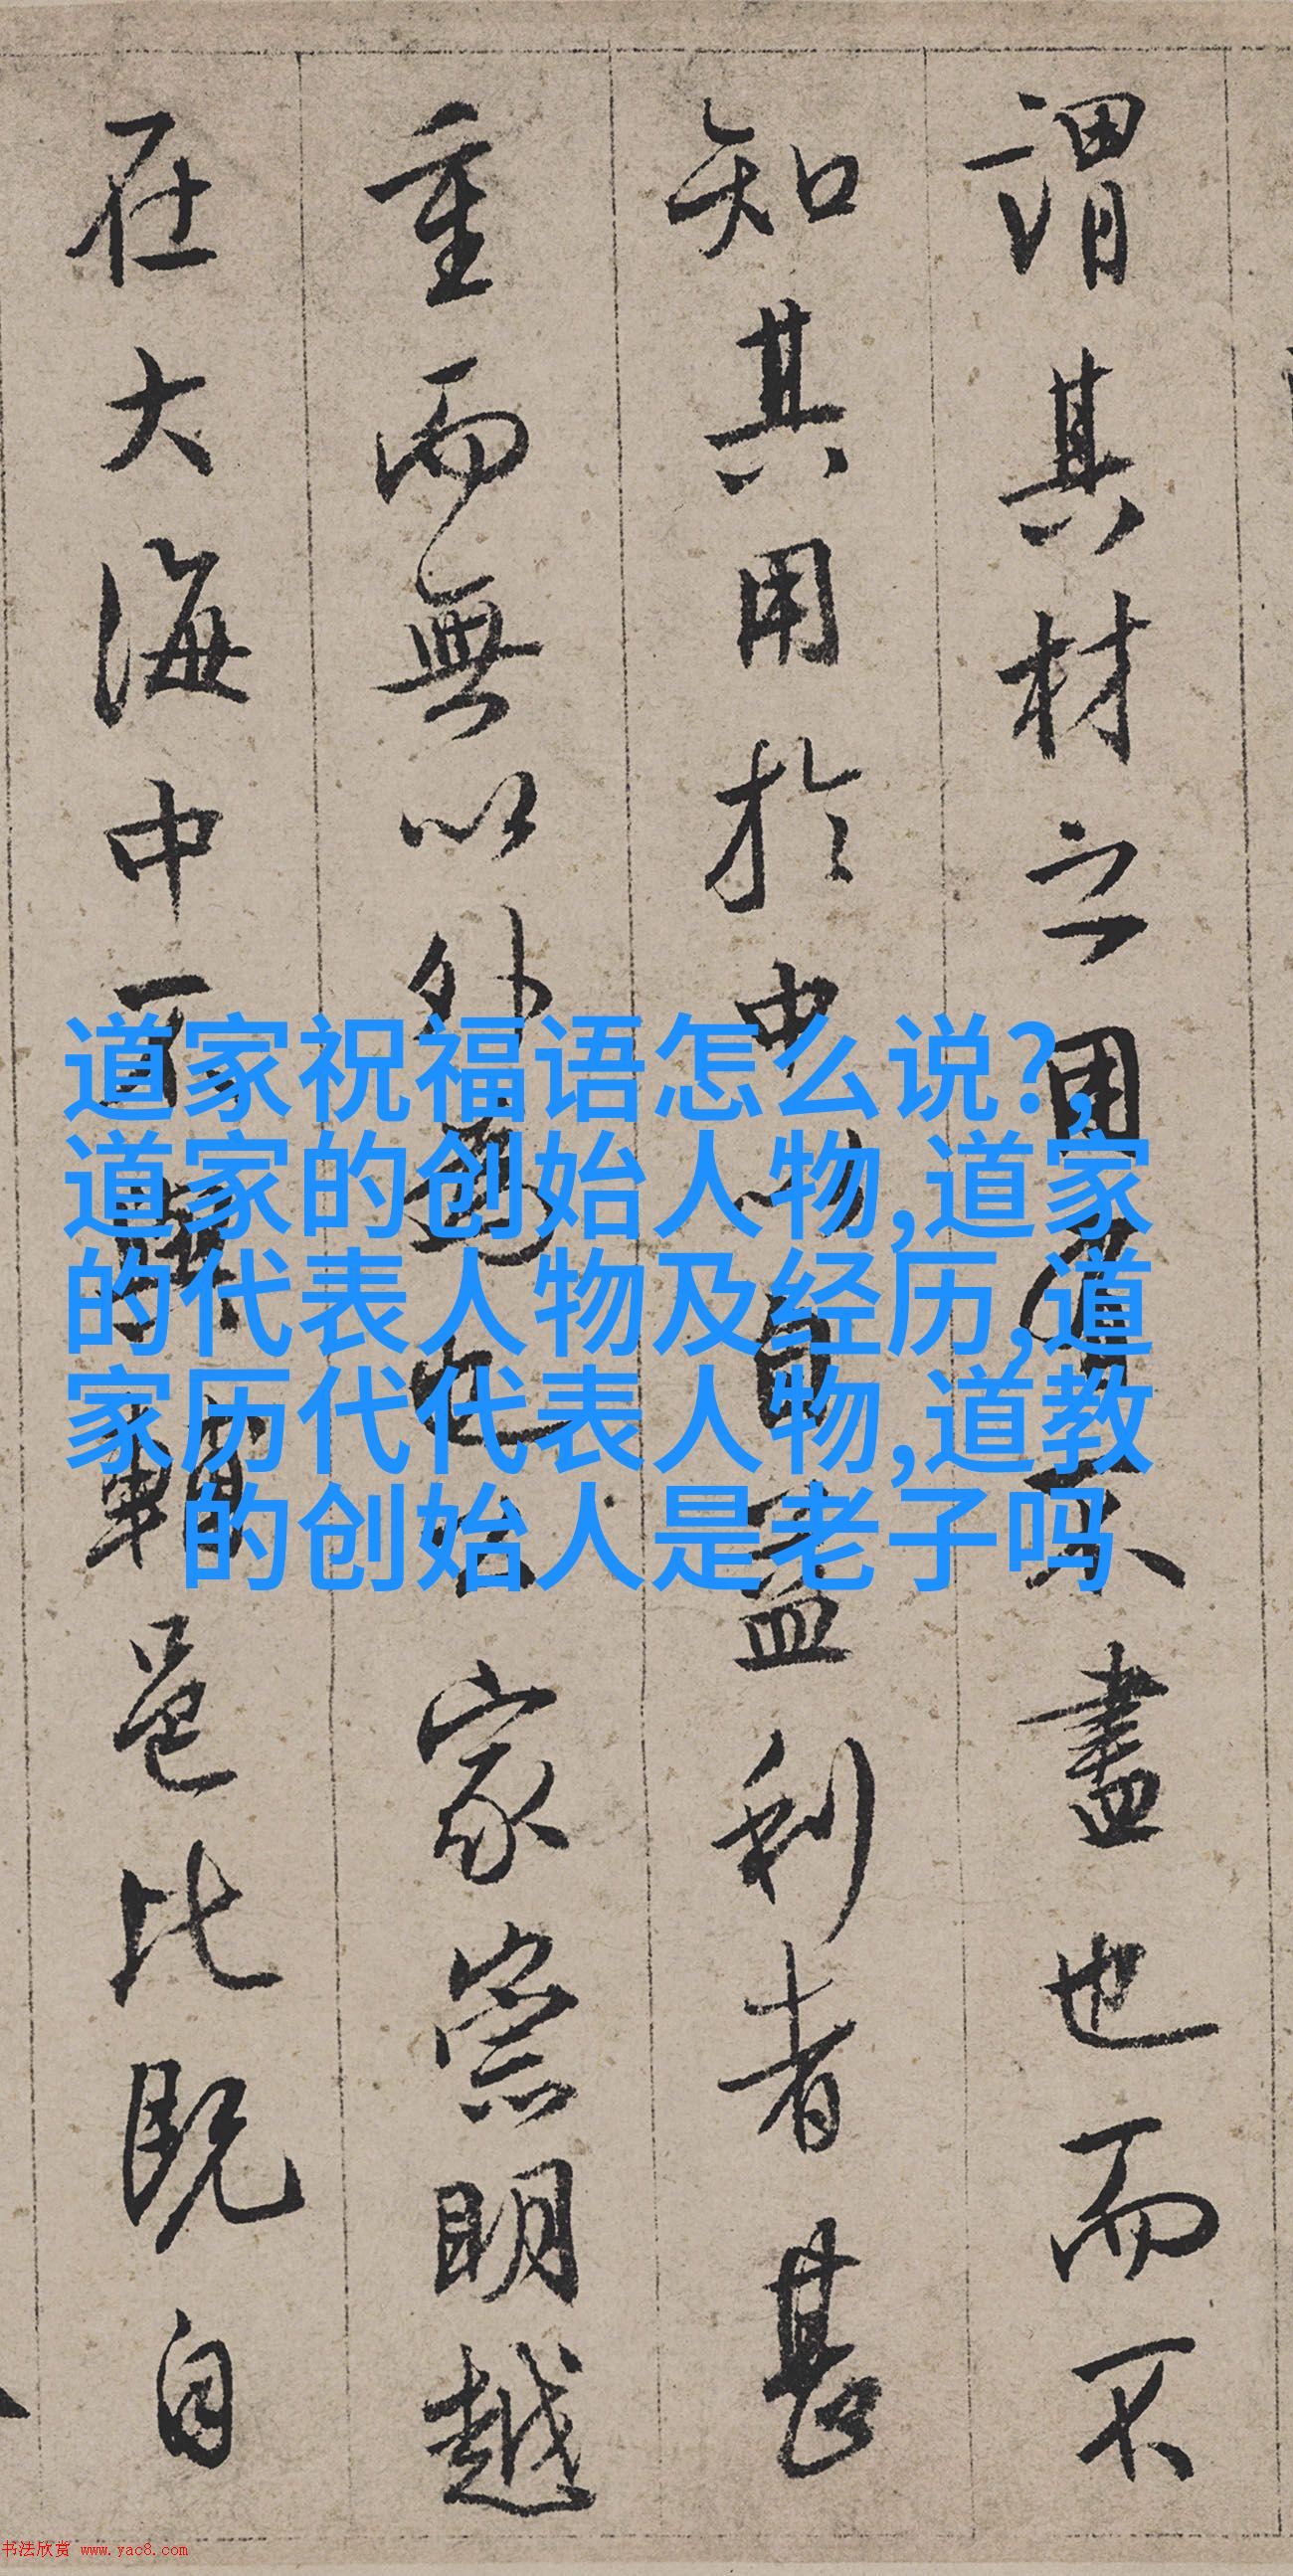 谓其材之用有不尽也而不
知其用於中以自益利者甚
重而無以外為也人家崇明越
在大海中可耕
邑比既自
道家祝福语怎么说?,
道家的创始人物,道家
的代表人物及经历,道
家历代代表人物,道教
的创始人是老子吗
书法欣赏 www.yac8.com